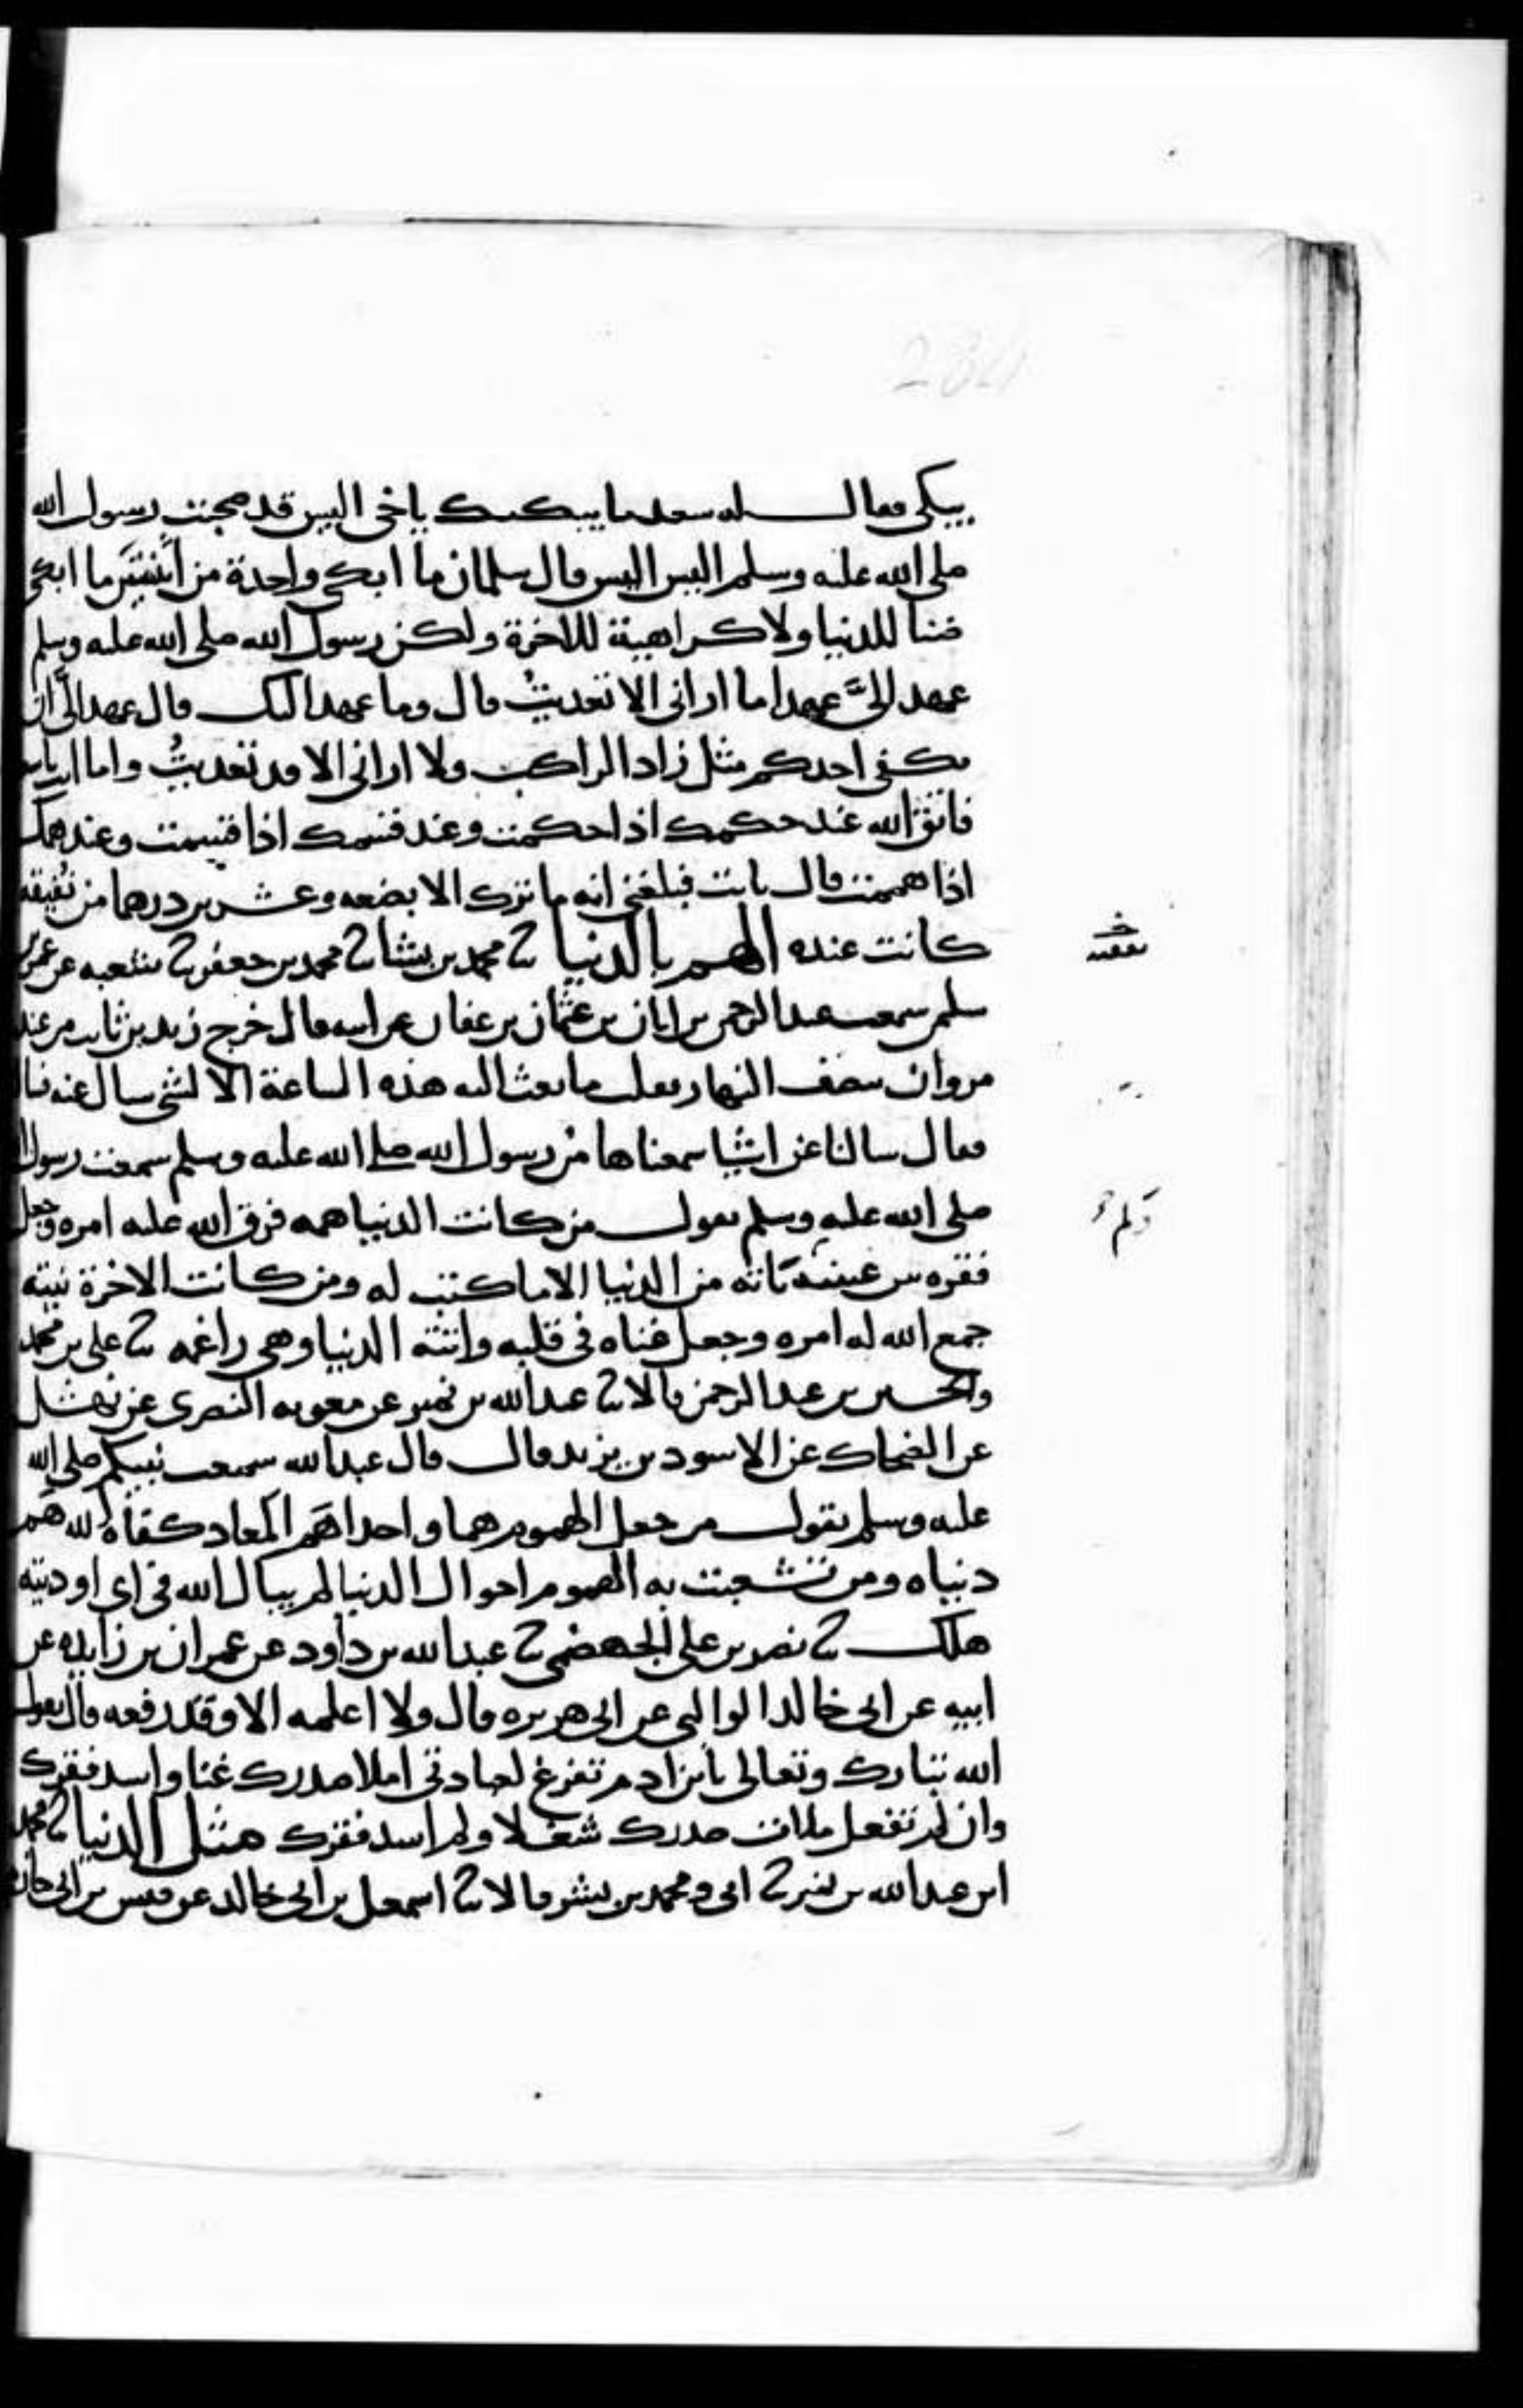 284
يبكي فقال له سعد ما يبكيك ياخي اليس قد صحبت رسول الله
صلى الله عليه وسلم اليس اليس قال سلمان ما ابكي واحدة من اثنتين ما ابكي
ضنا للدنيا ولا كراهية للاخرة ولكن رسول الله صلى الله عليه وسلم
عهد اليَّ عهدا ما اراني الا تعديتُ قال وما عهد اليك قال عهد اليَّ ان
يكفي احدكم مثل زاد الراكب ولا اراني الا قد تعديتُ واما انت يا سعد
فاتق الله عند حكمك اذا حكمت وعند قسمك اذا قسمت وعند همك
اذا هممت قال ثابت فبلغني انه ما ترك الا بضعه وعشرين درهما من نُفيقة
كانت عنده الهم بالدنيا ثا محمد بن بشار ثا محمد بن جعفر ثا شعبه عن عمر بن
نفقه
سلم سمعت عبد الرحمن بن ابان بن عثمان بن عفان عن ابيه قال خرج زيد بن ثابت من عند
مروان بنصف النهار فقلت ما بعث اليه هذه الساعة الا لشي سال عنه فسال
فقال سالنا عن اشيا سمعناها من رسول الله صلى الله عليه وسلم سمعت رسول الله
صلى الله عليه وسلم يقول من كانت الدنيا همه فرق الله عليه امره وجعل
فقره بين عينيه تاته من الدنيا الا ما كتب له ومن كانت الاخرة نيته
ولم
جمع الله له امره وجعل غناه في قلبه واتته الدنيا وهي راغمه ثا علي بن محمد
والحسين بن عبد الرحمن قالا ثا عبد الله بن نمير عن معويه النصري عن نهشل
عن الضحاك عن الاسود بن يزيد قال قال عبد الله سمعت نبيكم صلى الله
عليه وسلم يقول من جعل الهموم هما واحدا هَم المعاد كفاه الله هَم
دنياه ومن تشعبت به الهموم احوال الدنيا لم يبال الله في اي اوديته
هلك ثا نصر بن علي الجهضمي ثا عبد الله بن داود عن عمران بن زايده عن
ابيه عن ابي خالد الوالبي عن ابي هريره قال ولا اعلمه الا وقد رفعه قال يقول
الله تبارك وتعالى يابن ادم تفرغ لعبادتي املا صدرك غنا واسد فقرك
وان لم تفعل ملات صدرك شغلا ولم اسد فقرك مثل الدنيا ثا محمد
ابن عبد الله بن نمير ثا ابي ومحمد بن بشر قالا ثا اسمعيل بن ابي خالد عن قيس بن ابي حازم